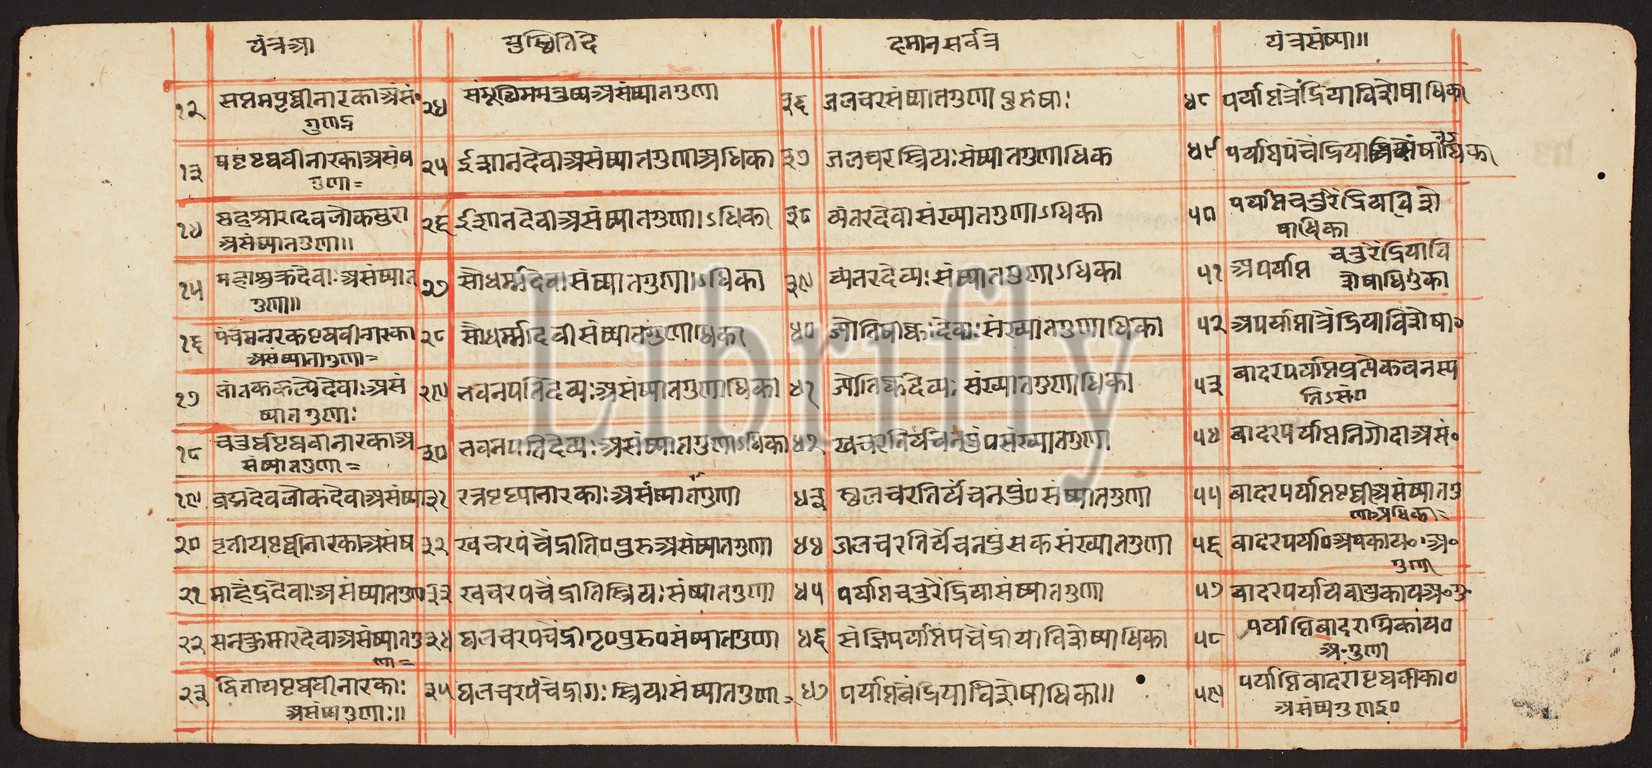 यंत्रञ्ञा
मुछितिदे
दमानसर्वत्र
यंत्रसंष्या॥
१२ सप्तमपृथ्वीनारकाअसं॰
गुणाः
१३ षष्टपृथवीनारकाअसंष
गुणा=
१४
असंष्यातगुणा॥
१५ महाशुक्रदेवाःअसंष्यात
गुणा॥
१६ पंचमनरकपृथवीनारका
असंष्यातागुणा=
१७ लांतककल्पेदेवाःअसं
ष्यातगुणाः
१८ चतुर्थपृथवीनारकाअ
संष्यातगुणा=
१९ ब्रह्मदेवलोकदेवाअसंष्या
२० तृतीयपृथ्वीनारकाअसंष
२१ माहेंद्रदेवाःअसंष्यातगुण
२२ सनत्कुमारदेवाअसंष्यातगु
णा=
२३ द्वितीयपृथवीनारकाः
असंष्यगुणाः॥
२४ संमूर्छिममनुष्यअसंष्यातगुणा
२५ ईशानदेवाअसंष्यातगुणाअधिका
२६ ईशानदेवाअसंष्यातगुणाऽधिका
२७ सौधर्म्मदेवासंष्यातगुणाऽधिका
२८ सौधर्म्मादेवीसंष्यातगुणाधिका
२९ भवनपतिदेव्यःअसंष्यातगुणाधिका
३० भवनपतिदेव्यःअसंष्यातगुणाऽधिका
३१ रत्नपृथ्यानारकाःअसंष्यातगुणा
३२ खचरपंचेंद्रीति०पुरुअसंष्यातगुणा
३३ खचरपंचेंद्रीतिस्त्रियःसंष्यातगुणा
३४ थलचरपंचेंद्री०पुरु०संष्यातगुणा
३५ थलचरपंचेंद्रीगःस्त्रियःसंष्यातगुणा
३६ जलचरसंष्यातगुणापुरुषाः
३७ जलचरस्त्रियःसंष्यातगुणाधिक
३८ व्यंतरदेवासंख्यातगुणाऽधिका
३९ व्यंतरदेव्यःसंष्यातगुणाऽधिका
४० ज्योतिषीष्कःदेव्यःसंख्यातगुणाधिका
४१ ज्योतिष्कदेव्यःसंख्यातगुणाधिका
४२ खचरतिर्यंचनपुंपसंख्यातगुणा
४३ थलचरतिर्यंचनपुं०संष्यातगुणा
४४ जलचरतिर्यंचनपुंसकसंख्यातगुणा
४५ पर्याप्तचतुरेंद्रियासंष्यातगुणा
४६ संज्ञिपर्याप्तपंचेंद्रीयाविशेष्याधिका
४७ पर्याप्तबेंद्रियाविशेषाधिका॥
४८ पर्याप्तत्रेंद्रियाविशेषाधिका
४९ पर्याप्तपंचेंद्रिया
५० पर्याप्तचतुरेंद्रियाविशे
षाधिका
५१ अपर्याप्त चतुरेंद्रियावि
शेषाधिका
५२ अपर्याप्तात्रेंद्रियाविशेषा॰
५३ बादरपर्याप्तप्रत्येकवनस्प
तिऽसं०
५४ बादरपर्याप्तनिगोदाअसं॰
५५ बादरपर्याप्तपृथ्वीअसंष्यातगु
णाअधिका=
५६ बादरपर्या०अपकाय॰अ॰
गुणा
५७ बादरपर्याप्तवायुकायअ॰गु
५८ पर्याप्तिबादराग्निकाय०
अ॰गुणा
५९ पर्याप्तिबादरापृथवीका०
असंष्यगुणा०
Librifly